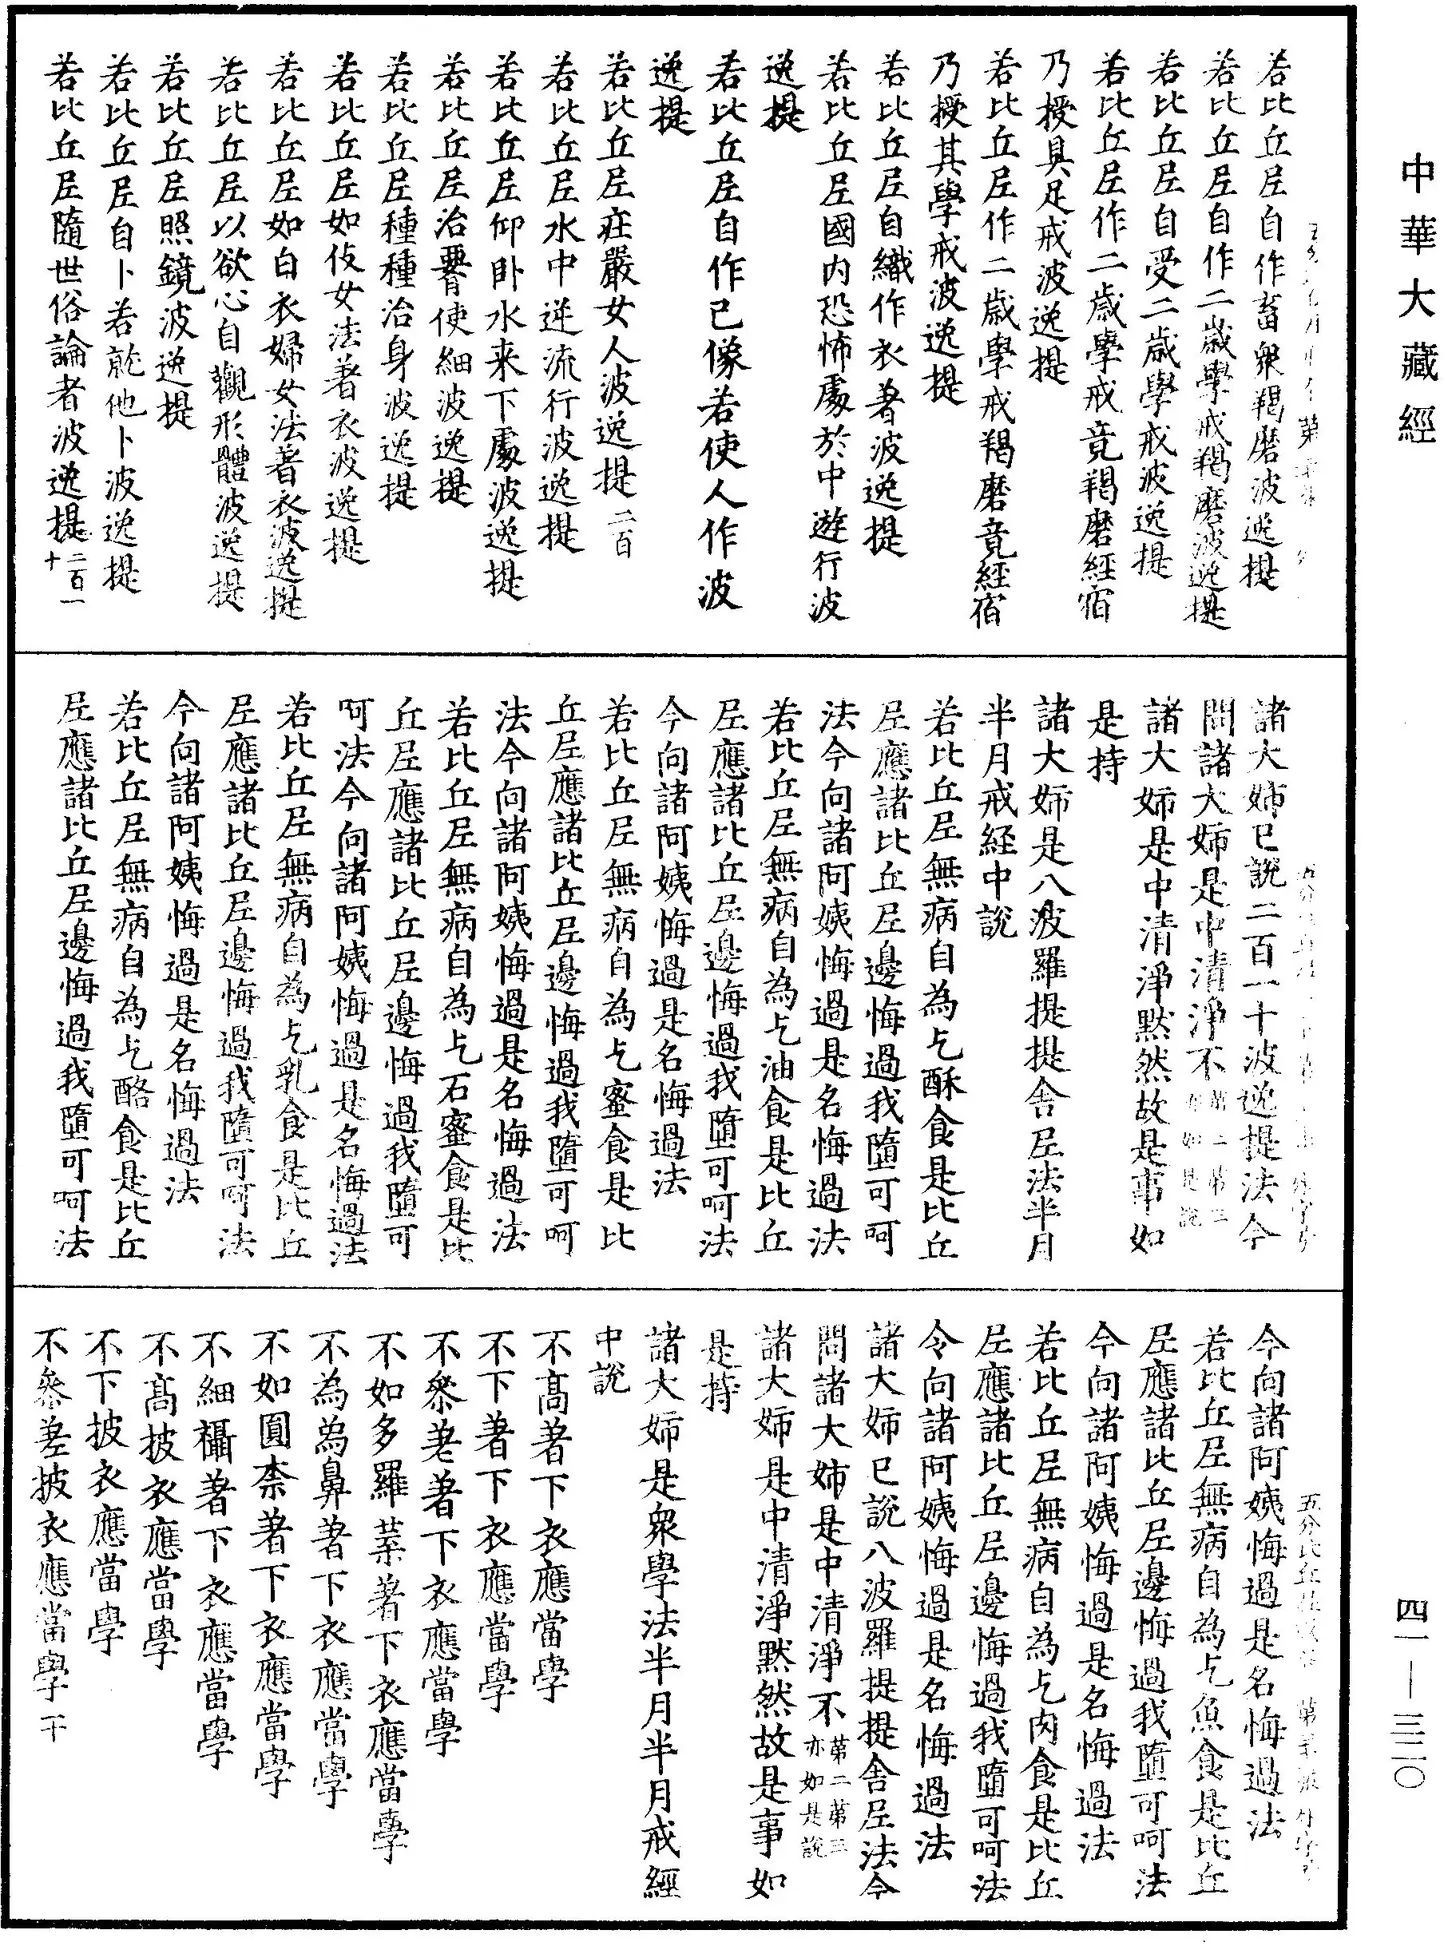 中華大藏經
若比丘尼自作畜眾羯磨波逸提
若比丘尼自作二歲學戒羯磨波逸提
若比丘尼自受二歲學戒波逸提
若比丘尼作二歲學戒竟羯磨經宿
乃授具足戒波逸提
若比丘尼作二歲學戒羯磨竟經宿
乃授其學戒波逸提
若比丘尼自織作衣著波逸提
若比丘尼國內恐怖處於中遊行波
逸提
若比丘尼自作己像若使人作波
逸提
若比丘尼莊嚴女人波逸提二百
若比丘尼水中逆流行波逸提
若比丘尼仰卧水來下處波逸提
若比丘尼治使細波逸提
若比丘尼種種治身波逸提
若比丘尼如伎女法著衣波逸提
若比丘尼如白衣婦女法著衣波逸提
若比丘尼以欲心自觀形體波逸提
若比丘尼照鏡波逸提
若比丘尼自卜若就他卜波逸提
若比丘尼隨世俗論者波逸提二百一十
諸大姉已說二百一十波逸提法今
問諸大姉是中清淨不第二第三亦如是說
諸大姉是中清淨默然故是事如
是持
諸大姉是八波羅提提舍尼法半月
半月戒經中說
若比丘尼無病自為乞酥食是比丘
尼應諸比丘尼邊悔過我墮可呵
法今向諸阿姨悔過是名悔過法
若比丘尼無病自為乞油食是比丘
尼應諸比丘尼邊悔過我墮可呵法
今向諸阿姨悔過是名悔過法
若比丘尼無病自為乞蜜食是比
丘尼應諸比丘尼邊悔過我墮可呵
法今向諸阿姨悔過是名悔過法
若比丘尼無病自為乞石蜜食是比
丘尼應諸比丘尼邊悔過我墮可
呵法今向諸阿姨悔過是名悔過法
若比丘尼無病自為乞乳食是比丘
尼應諸比丘尼邊悔過我墮可呵法
今向諸阿姨悔過是名悔過法
若比丘尼無病自為乞酪食是比丘
尼應諸比丘尼邊悔過我墮可呵法
今向諸阿姨悔過是名悔過法
若比丘尼無病自為乞魚食是比丘
尼應諸比丘尼邊悔過我墮可呵法
今向諸阿姨悔過是名悔過法
若比丘尼無病自為乞肉食是比丘
尼應諸比丘尼邊悔過我墮可呵法
今向諸阿姨悔過是名悔過法
諸大姉已說八波羅提提舍尼法今
問諸大姉是中清淨不第二第三亦如是說
諸大姉是中清淨默然故是事如
是持
諸大姉是眾學法半月半月戒經
中說
不高著下衣應當學
不下著下衣應當學
不參差著下衣應當學
不如多羅葉著下衣應當學
不為象鼻著下衣應當學
不如圓柰著下衣應當學
不細襵著下衣應當學
不高披衣應當學
不下披衣應當學
不參差披衣應當學十
四一—三二〇